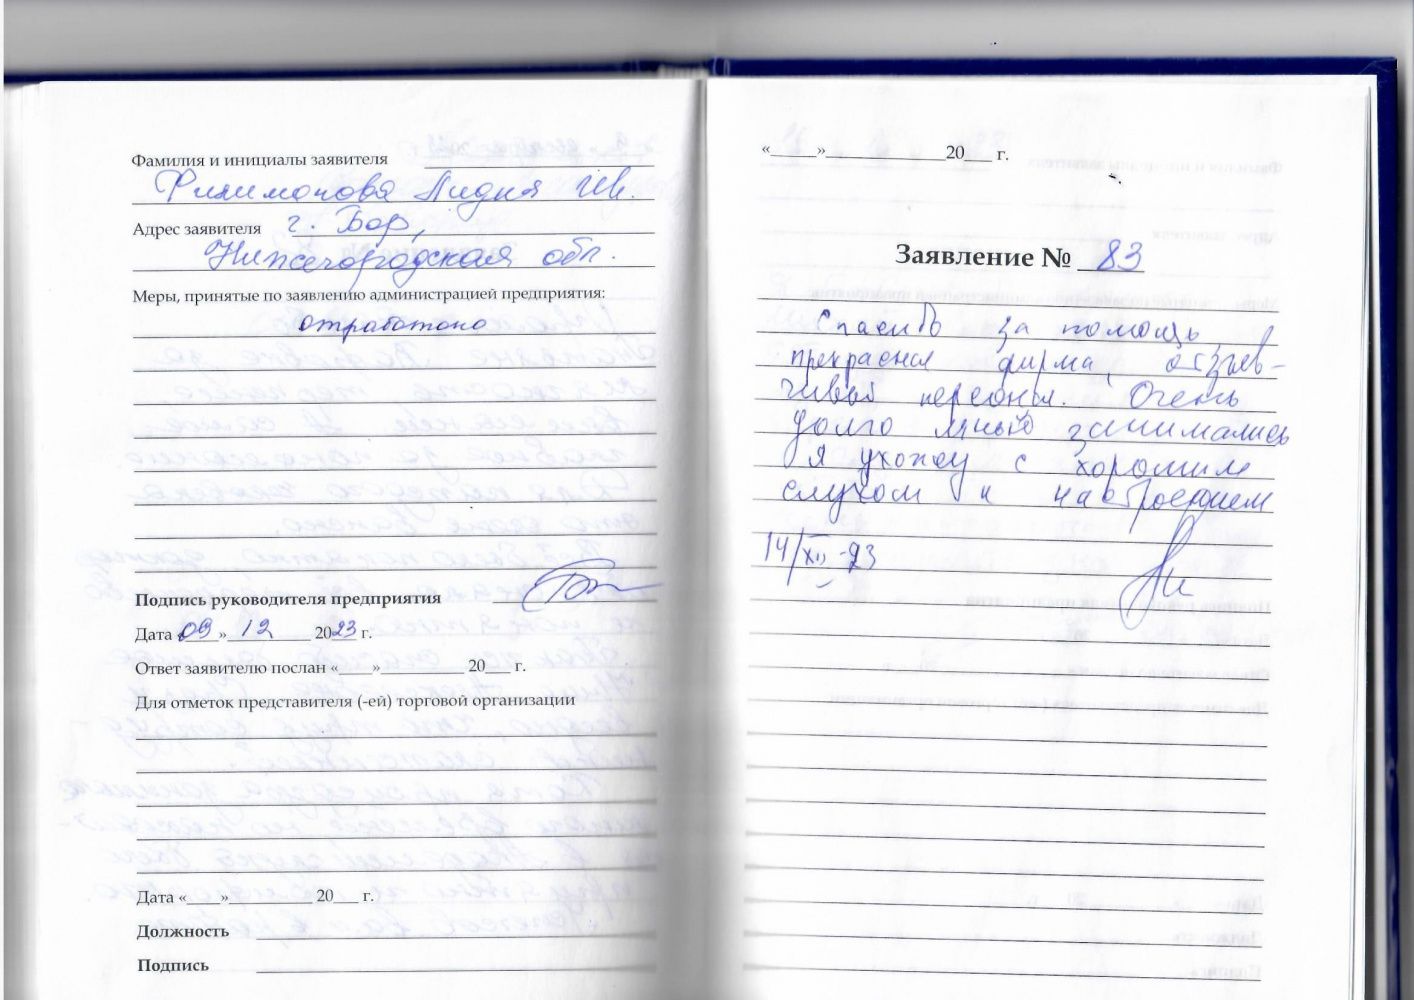 Фамилия и инициалы заявителя
Филимонова Лидия Ив.
Адрес заявителя г. Бор,
Нижегородская обл.
Меры, принятые по заявлению администрацией предприятия:
отработано
Подпись руководителя предприятия
Дата «09»  12  2023 г.
Ответ заявителю послан «____»__________ 20___ г.
Для отметок представителя (-ей) торговой организации
Дата «____»__________ 20___ г.
Должность
Подпись
«_____»______________20___ г.
Заявление № 83
Спасибо за помощь,
прекрасная фирма, отзыв-
чивый персонал. Очень
долго мной занимались
я ухожу с хорошим
слухом и настроением
14/XII -23